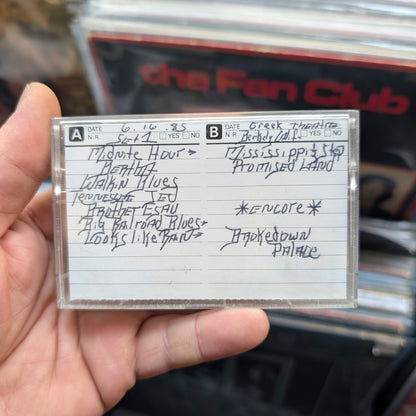 the Fan Club
A DATE 6.16.85
N.R. Set 1 YES NO
Midnite Hour →
Bertha
Walkin Blues
Tennessee Jed
Brother Esau
Big Railroad Blues →
Looks Like Rain →
B DATE Greek Theatre
N.R. YES NO
Mississippi ½ Step
Promised Land
*Encore*
Brokedown
Palace